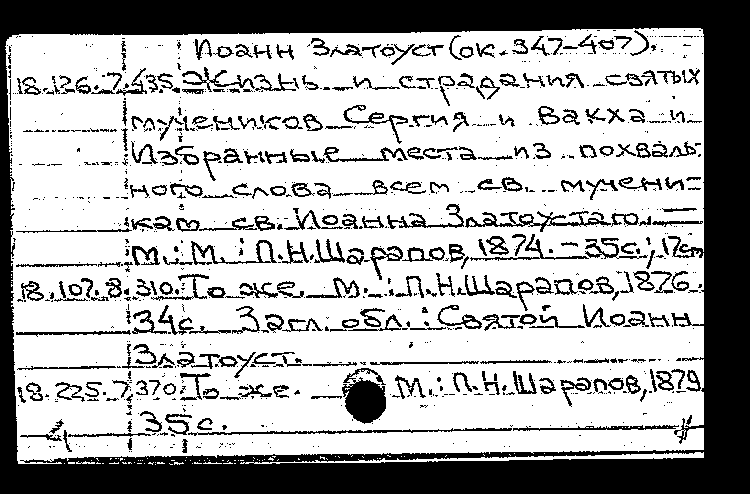 Иоанн Златоуст (ок. 347-407).
18.126.7.435. Жизнь и страдания святых
мучеников Сергия и Вакха и
Избранные места из похваль-
ного слова всем св. мучени-
кам св. Иоанна Златоустаго. —
М.: М.: П.Н.Шарапов, 1874. - 35с.; 17см
18.107.8.310. То же. М.: П.Н.Шарапов, 1876.
34с. Загл. обл.: Святой Иоанн
Златоуст.
18.225.7.370. То же. М.: П.Н.Шарапов, 1879.
35с.